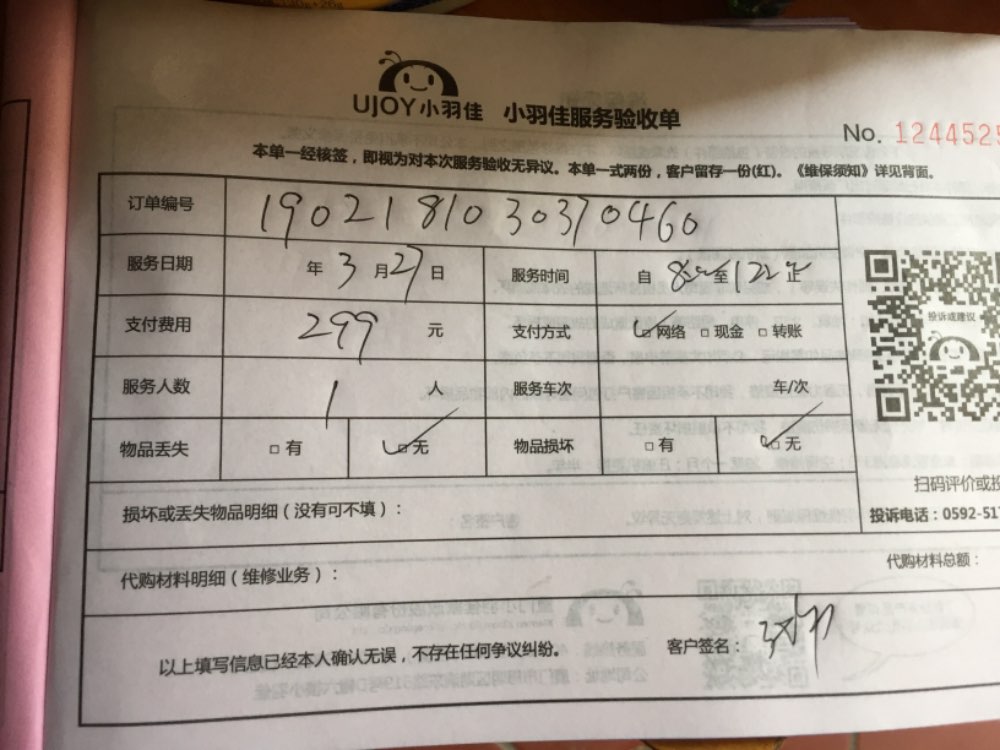 UJOY小羽佳 小羽佳服务验收单
No. 1244529
本单一经核签，即视为对本次服务验收无异议。本单一式两份，客户留存一份(红)。《维保须知》详见背面。
订单编号 1902181030370460
服务日期 年 3 月 27 日 服务时间 自 至
支付费用 299 元 支付方式 ☑网络 □现金 □转账
服务人数 1 人 服务车次 车/次
物品丢失 □有 ☑无 物品损坏 □有 ☑无
投诉或建议
扫码评价或投
损坏或丢失物品明细（没有可不填）：
投诉电话：0592-517
代购材料明细（维修业务）： 代购材料总额：
以上填写信息已经本人确认无误，不存在任何争议纠纷。 客户签名：